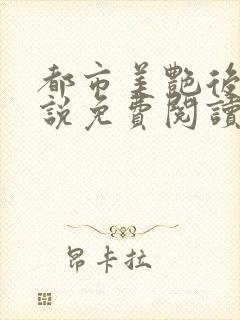 都市美艷後
說免費閱讀
昂卡拉